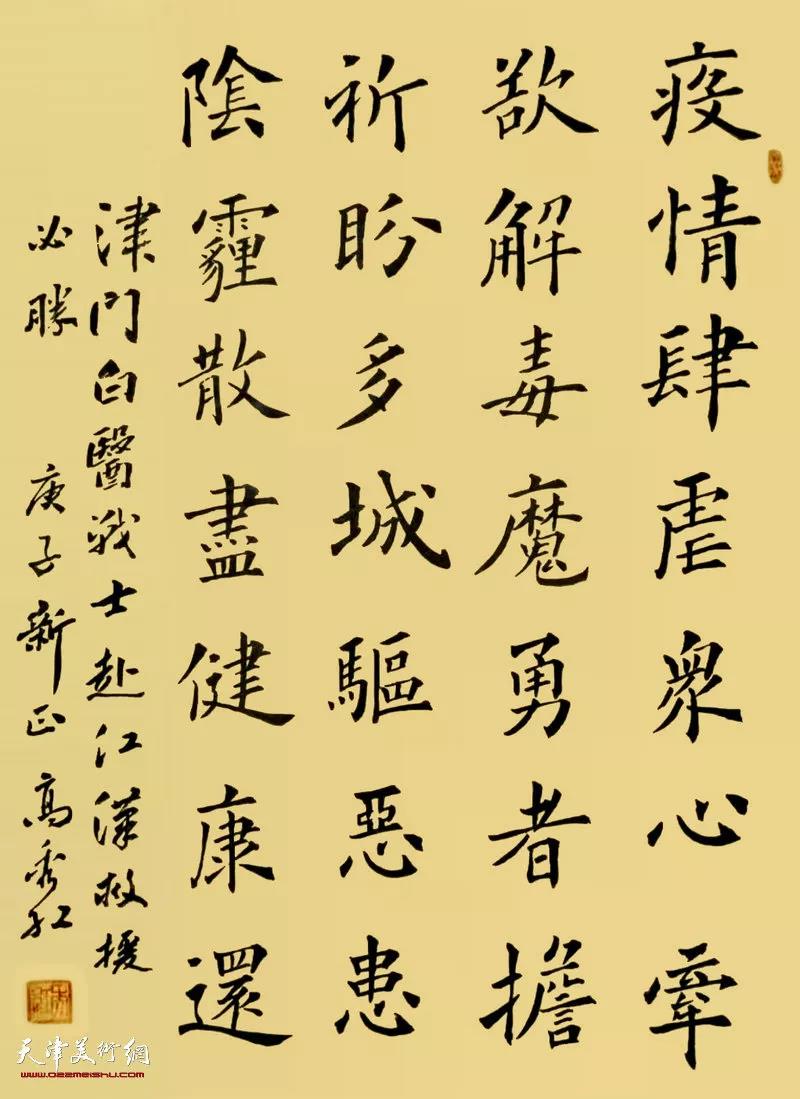 疫情肆虐衆心牽
欲解毒魔勇者擔
祈盼多城驅惡患
陰霾散盡健康還
津門白醫戰士赴江漢救援
必勝 庚子新正 高秀红
天津美術網
www.022meishu.com